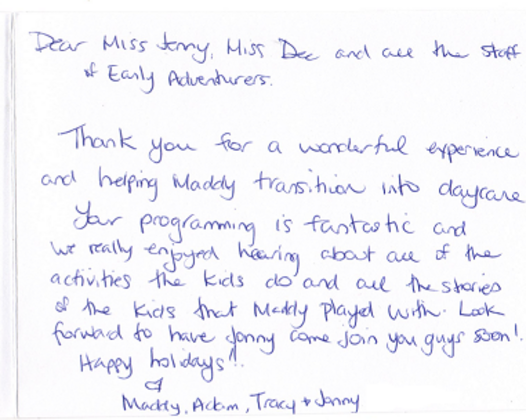 Dear Miss Jenny, Miss Dee and all the staff
of Early Adventurers.
Thank you for a wonderful experience
and helping Maddy transition into daycare
Your programming is fantastic and
we really enjoyed hearing about all of the
activities the kids do and all the stories
of the kids that Maddy played with. Look
forward to have Jonny come join you guys soon!
Happy holidays!!
Maddy, Adam, Tracy + Jonny